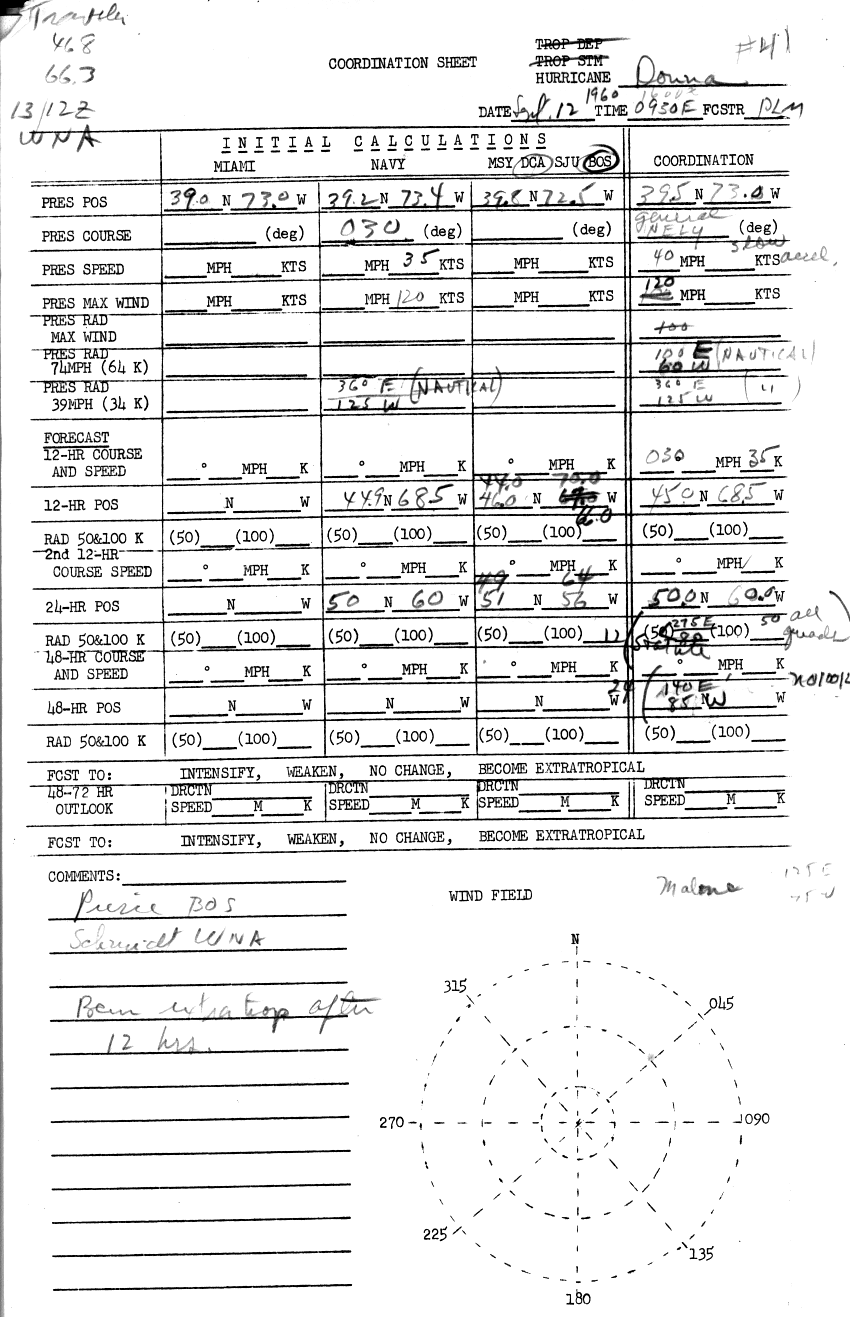 46.8
66.3
13/12Z
WNA
#41
TROP DEP
TROP STM
COORDINATION SHEET HURRICANE Donna
DATE Sept. 12 1960 TIME 0930E FCSTR
INITIAL CALCULATIONS
MIAMI NAVY MSY DCA SJU BOS COORDINATION
PRES POS 39.0 N 73.0 W 39.2 N 73.4 W 39.8 N 72.5 W 39.5 N 73.0 W
general
PRES COURSE (deg) 030 (deg) (deg) NELY (deg)
slow
PRES SPEED MPH KTS MPH 35 KTS MPH KTS 40 MPH KTS accel.
PRES MAX WIND MPH KTS MPH 120 KTS MPH KTS 120 MPH KTS
PRES RAD
MAX WIND 100
PRES RAD 100 E (NAUTICAL)
74MPH (64 K) 60 W
PRES RAD 360 E (NAUTICAL) 360 E
39MPH (34 K) 125 W 125 W
FORECAST
12-HR COURSE
AND SPEED ° MPH K ° MPH K ° MPH K 030 MPH 35 K
44.0 70.0
12-HR POS N W 44.9 N 68.5 W 46.0 N 69.0 W 45.0 N 68.5 W
66.0
RAD 50&100 K (50) (100) (50) (100) (50) (100) (50) (100)
2nd 12-HR
COURSE SPEED ° MPH K ° MPH K ° MPH K ° MPH K
49 64
24-HR POS N W 50 N 60 W 51 N 56 W 50.0 N 60.0 W
275 E 50 all
RAD 50&100 K (50) (100) (50) (100) (50) (100) 12 (50) 80 (100) quads
Statute
48-HR COURSE
AND SPEED ° MPH K ° MPH K ° MPH K ° MPH K
24 140 E
48-HR POS N W N W N W 85 N W W
RAD 50&100 K (50) (100) (50) (100) (50) (100) (50) (100)
FCST TO: INTENSIFY, WEAKEN, NO CHANGE, BECOME EXTRATROPICAL
48-72 HR DRCTN DRCTN DRCTN DRCTN
OUTLOOK SPEED M K SPEED M K SPEED M K SPEED M K
FCST TO: INTENSIFY, WEAKEN, NO CHANGE, BECOME EXTRATROPICAL
COMMENTS:
BOS
Schmidt WNA
Becm extratrop after
12 hrs.
WIND FIELD
Malone
N
315
045
270
090
225
135
180